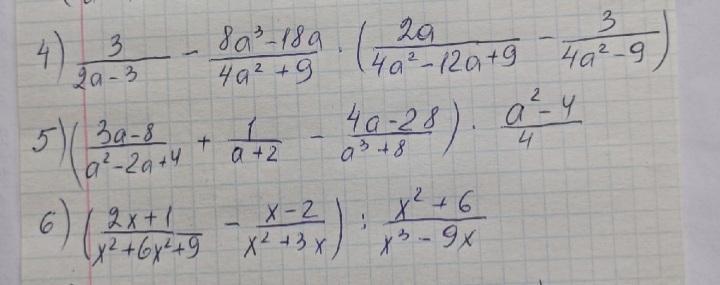 4) 3/(2a-3) - (8a³-18a)/(4a²+9) · (2a/(4a²-12a+9) - 3/(4a²-9))
5) ((3a-8)/(a²-2a+4) + 1/(a+2) - (4a-28)/(a³+8)) · (a²-4)/4
6) ((2x+1)/(x²+6x²+9) - (x-2)/(x²+3x)) : (x²+6)/(x³-9x)